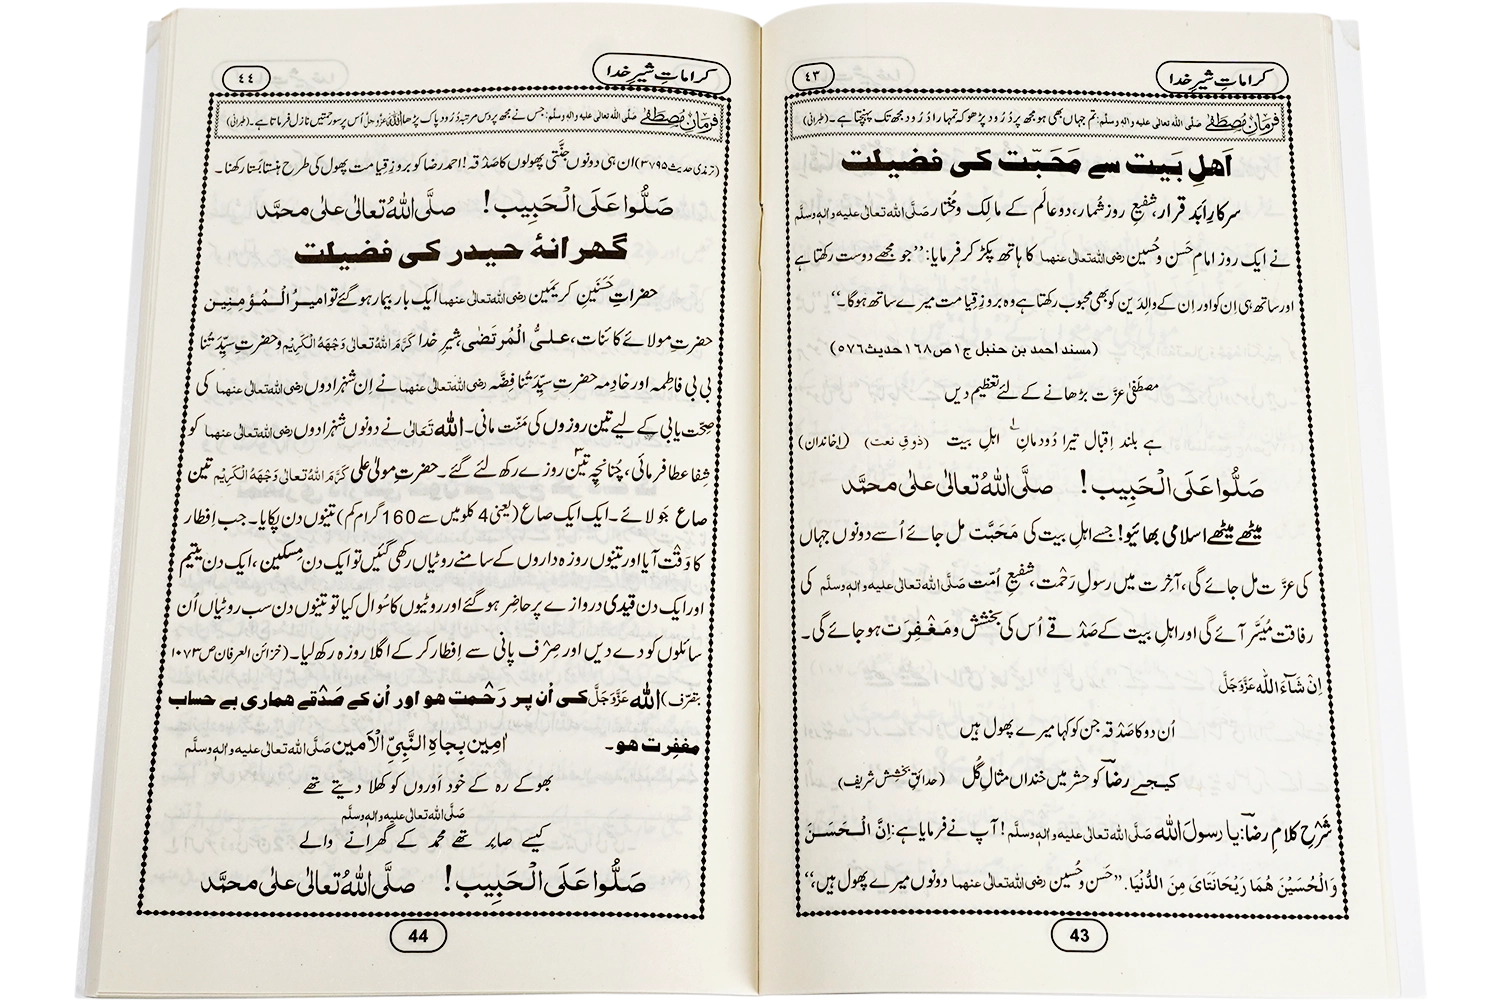 کراماتِ شیرِ خدا
٤٣
فرمانِ مُصطَفٰے صلَّی اللہ تعالٰی علیہ واٰلہٖ وسلَّم: تم جہاں بھی ہو مجھ پر دُرُود پڑھو کہ تمہارا دُرُود مجھ تک پہنچتا ہے۔ (طبرانی)
اَہلِ بَیت سے مَحَبّت کی فضیلت
سرکارِ اَبَد قرار، شفیعِ روزِ شمار، دو عالَم کے مالِک و مختار صَلَّی اللہ تعالٰی علیہ واٰلہٖ وسلَّم
نے ایک روز امام حَسن و حُسین رضی اللہ تعالٰی عنہما کا ہاتھ پکڑ کر فرمایا: ’’جو مجھے دوست رکھتا ہے
اور ساتھ ہی اِن کو اور اِن کے والِدَین کو بھی محبوب رکھتا ہے وہ بروزِ قِیامت میرے ساتھ ہوگا۔‘‘
(مسند احمد بن حنبل ج۱ ص۱۶۸ حدیث ۵۷۶)
مصطَفٰے عزّت بڑھانے کے لئے تعظیم دیں
ہے بلند اِقبال تیرا دُودمانِ اہلِ بیت (ذوقِ نعت) (۱خاندان)
صَلُّوا عَلَی الْحَبِیب! صلَّی اللہُ تعالٰی علٰی محمَّد
میٹھے میٹھے اسلامی بھائیو! جسے اہلِ بیت کی مَحَبَّت مل جائے اُسے دونوں جہاں
کی عزّت مل جائے گی، آخِرت میں رسولِ رَحمت، شفیعِ اُمّت صَلَّی اللہ تعالٰی علیہ واٰلہٖ وسلَّم کی
رفاقت مُیَسَّر آئے گی اور اہلِ بیت کے صَدْقے اُس کی بخشش و مَغْفِرَت ہوجائے گی۔
اِنْ شَآءَ اللہ عَزَّوَجَلَّ
اُن دو کا صَدْقہ جن کو کہا میرے پھول ہیں
کیجے رضاؔ کو حشر میں خنداں مثالِ گُل (حدائقِ بخشِش شریف)
شَرْحِ کلامِ رضاؔ: یا رسولَ اللہ صَلَّی اللہ تعالٰی علیہ واٰلہٖ وسلَّم! آپ نے فرمایا ہے: اِنَّ الْحَسَنَ
وَالْحُسَیْنَ ھُمَا رَیْحَانَتَایَ مِنَ الدُّنْیَا. ’’حَسن و حُسین رضی اللہ تعالٰی عنہما دونوں میرے پھول ہیں،‘‘
43
کراماتِ شیرِ خدا
٤٤
فرمانِ مُصطَفٰے صلَّی اللہ تعالٰی علیہ واٰلہٖ وسلَّم: جس نے مجھ پر دس مرتبہ دُرُودِ پاک پڑھا اللہ عَزَّوَجَلَّ اُس پر سو رحمتیں نازل فرماتا ہے۔ (طبرانی)
(ترمذی حدیث ۳۷۹۵) ان ہی دونوں جنّتی پھولوں کا صَدْقہ! احمد رضا کو بروزِ قیامت پھول کی طرح ہنستا بَستا رکھنا۔
صَلُّوا عَلَی الْحَبِیب! صلَّی اللہُ تعالٰی علٰی محمَّد
گھرانۂ حیدر کی فضیلت
حضراتِ حَسَنَینِ کریمَین رضی اللہ تعالٰی عنہما ایک بار بیمار ہوگئے تو امیرُ الْمُؤمِنِین
حضرتِ مولائے کائنات، عَلِیُّ الْمُرتَضٰی شیرِ خدا کَرَّمَ اللہُ تَعَالٰی وَجْھَہُ الْکَرِیْم وحضرتِ سیِّدَتُنا
بی بی فاطِمہ اور خادِمہ حضرتِ سیِّدَتُنا فِضّہ رضی اللہ تعالٰی عنہما نے اِن شہزادوں رضی اللہ تعالٰی عنہما کی
صِحّت یابی کے لیے تین روزوں کی مَنّت مانی۔ اللہ تَعَالٰی نے دونوں شہزادوں رضی اللہ تعالٰی عنہما کو
شِفا عطا فرمائی، چُنانچِہ تین۳ روزے رکھ لئے گئے۔ حضرتِ مولیٰ علی کَرَّمَ اللہُ تَعَالٰی وَجْھَہُ الْکَرِیْم تین
صاع جَو لائے۔ ایک ایک صاع (یعنی 4 کلو میں سے 160 گرام کم) تینوں دن پکایا۔ جب اِفطار
کا وَقْت آیا اور تینوں روزہ داروں کے سامنے روٹیاں رکھی گئیں تو ایک دن مِسکین، ایک دن یتیم
اور ایک دن قیدی دروازے پر حاضِر ہوگئے اور روٹیوں کا سُوال کیا تو تینوں دن سب روٹیاں اُن
سائلوں کو دے دیں اور صِرْف پانی سے اِفطار کرکے اگلا روزہ رکھ لیا۔ (خزائن العرفان ص۱۰۷۳
بتصرّف) اللہ عَزَّوَجَلَّ کی اُن پر رَحْمت ہو اور اُن کے صَدْقے ہماری بے حساب
مغفِرت ہو۔ اٰمِین بِجاہِ النَّبِیِّ الْاَمین صَلَّی اللہ تعالٰی علیہ واٰلہٖ وسلَّم
بھوکے رہ کے خود اَوروں کو کھلا دیتے تھے
صَلَّی اللہ تعالٰی علیہ واٰلہٖ وسلَّم
کیسے صابِر تھے محمد کے گھرانے والے
صَلُّوا عَلَی الْحَبِیب! صلَّی اللہُ تعالٰی علٰی محمَّد
44